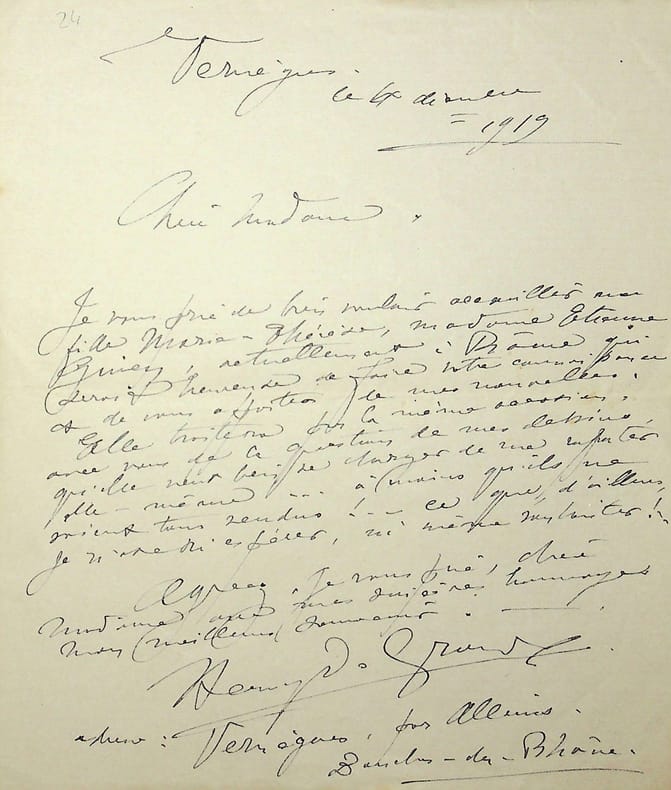 24
Vernègues.
le 4 décembre
= 1919
Chère Madame,
Je vous prie de bien vouloir accueillir ma
fille Marie-Thérèse, madame Etienne
, actuellement à Rome qui
serait heureuse de faire votre connaissance
et de vous apporter de mes nouvelles.
Elle traitera par la même occasion,
avec vous de la question de mes dessins,
qu'elle veut bien se charger de me rapporter
elle-même --- à moins qu'ils ne
soient tous vendus! --- ce que, d'ailleurs,
je n'ose ni espérer, ni même souhaiter!..
Agréez, je vous prie, chère
Madame avec mes hommages
mes meilleurs souvenirs.
Henry
adresse: Vernègues, par Alleins.
Bouches-du-Rhône.